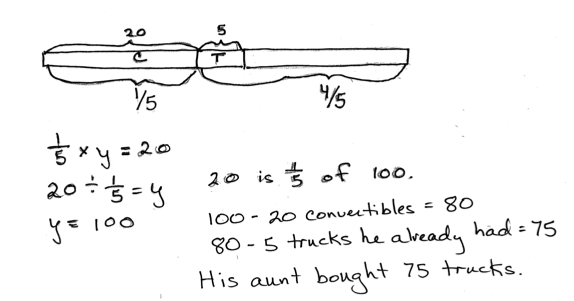 20 5
C T
1/5 4/5
1/5 × y = 20
20 ÷ 1/5 = y
y = 100
20 is 1/5 of 100.
100 - 20 convertibles = 80
80 - 5 trucks he already had = 75
His aunt bought 75 trucks.